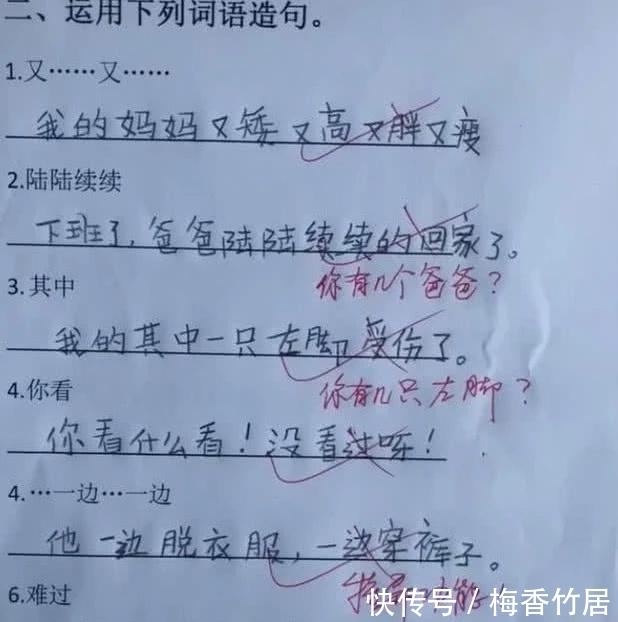 二、运用下列词语造句。
1.又……又……
我的妈妈又矮又高又胖又瘦
2.陆陆续续
下班了,爸爸陆陆续续的回家了。
你有几个爸爸?
3.其中
我的其中一只左脚受伤了。
你有几只左脚?
4.你看
你看什么看!没看过呀!
4.…一边…一边
他一边脱衣服,一边穿裤子。
6.难过
快传号 / 梅香竹居